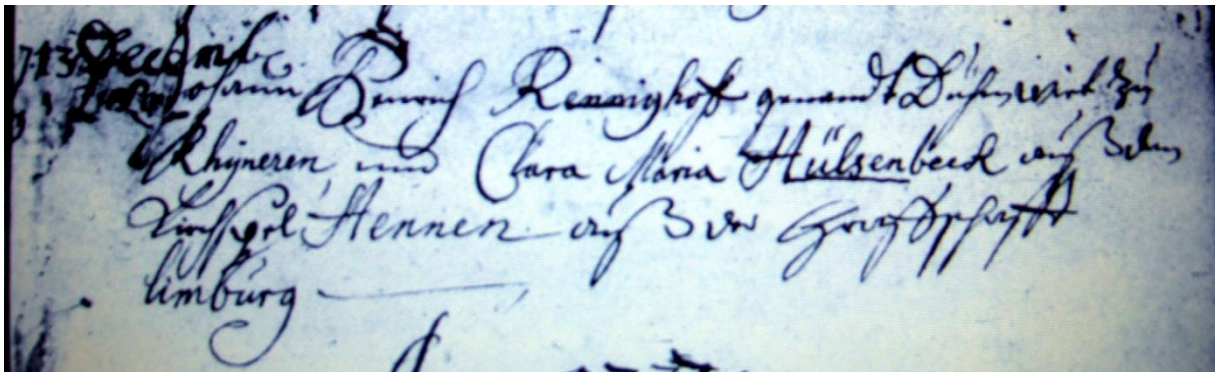 Johann Henrich Renninghoff genandt Duhmwirt zu
Rhyneren und Clara Maria Hülsenbeck auß dem
Kirchspel Hennen auß der Graffschafft
limburg